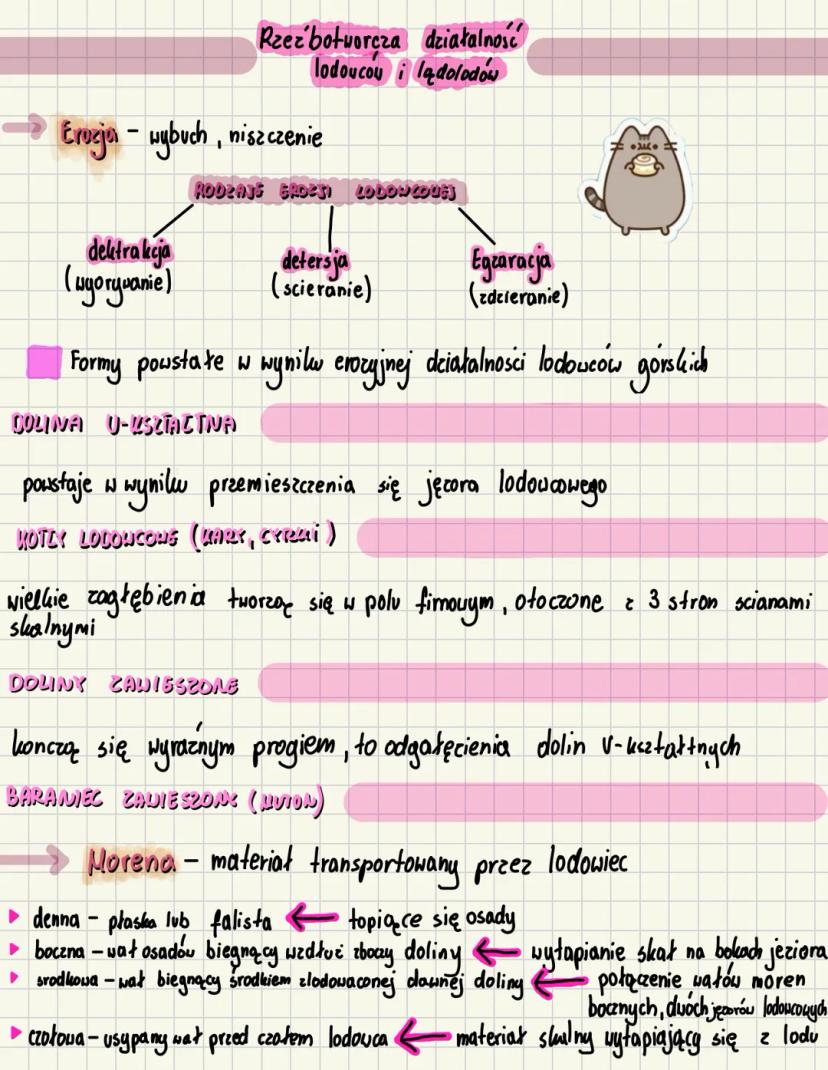 Rzeźbotwórcza działalność
lodowców i lądolodów
Erozja - wybuch, niszczenie
RODZAJE EROZJI LODOWCOWEJ
detrakcja detersja Egzaracja
(wyorywanie) (scieranie) (zdzieranie)
Formy powstałe w wyniku erozyjnej działalności lodowców górskich
DOLINA U-KSZTAŁTNA
powstaje w wyniku przemieszczenia się jęzora lodowcowego
KOTŁY LODOWCOWE (KARY, CYRKI)
wielkie zagłębienia tworzące się w polu firnowym, otoczone z 3 stron scianami
skalnymi
DOLINY ZAWIESZONE
kończą się wyraźnym progiem, to odgałęzienia dolin U-kształtnych
BARANIEC ZAWIESZONY (MUTON)
Morena - materiał transportowany przez lodowiec
denna - płaska lub falista ← topiące się osady
boczna - wał osadów biegnący wzdłuż zboczy doliny ← wytapianie skał na bokach jeziora
srodkowa - wał biegnący środkiem zlodowaconej dawnej doliny ← połączenie wałów moren
bocznych, dwóch jęzorów lodowcowych
czołowa - usypany wał przed czołem lodowca ← materiał skalny wytapiający się z lodu